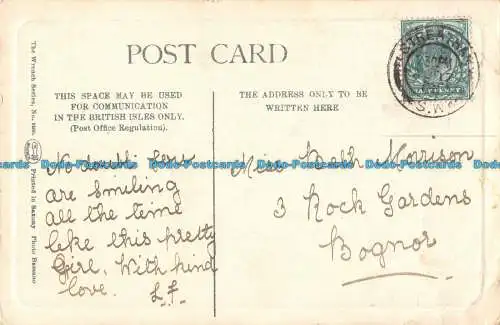 The Wrench Series, No.
Printed in Saxony
Photo Bassano
POST CARD
THIS SPACE MAY BE USED
FOR COMMUNICATION
IN THE BRITISH ISLES ONLY.
(Post Office Regulation).
THE ADDRESS ONLY TO BE
WRITTEN HERE
STREATHAM
S.W.
HALFPENNY
No doubt you
are smiling
all the time
like this pretty
Girl. With kind
love. L.F.
Miss Beth Morrison
3 Rock Gardens
Bognor
Dodo-Postcards Dodo-Postcards Dodo-Postcards Dodo-Postcards Dodo-Postcards Dodo-Postcards